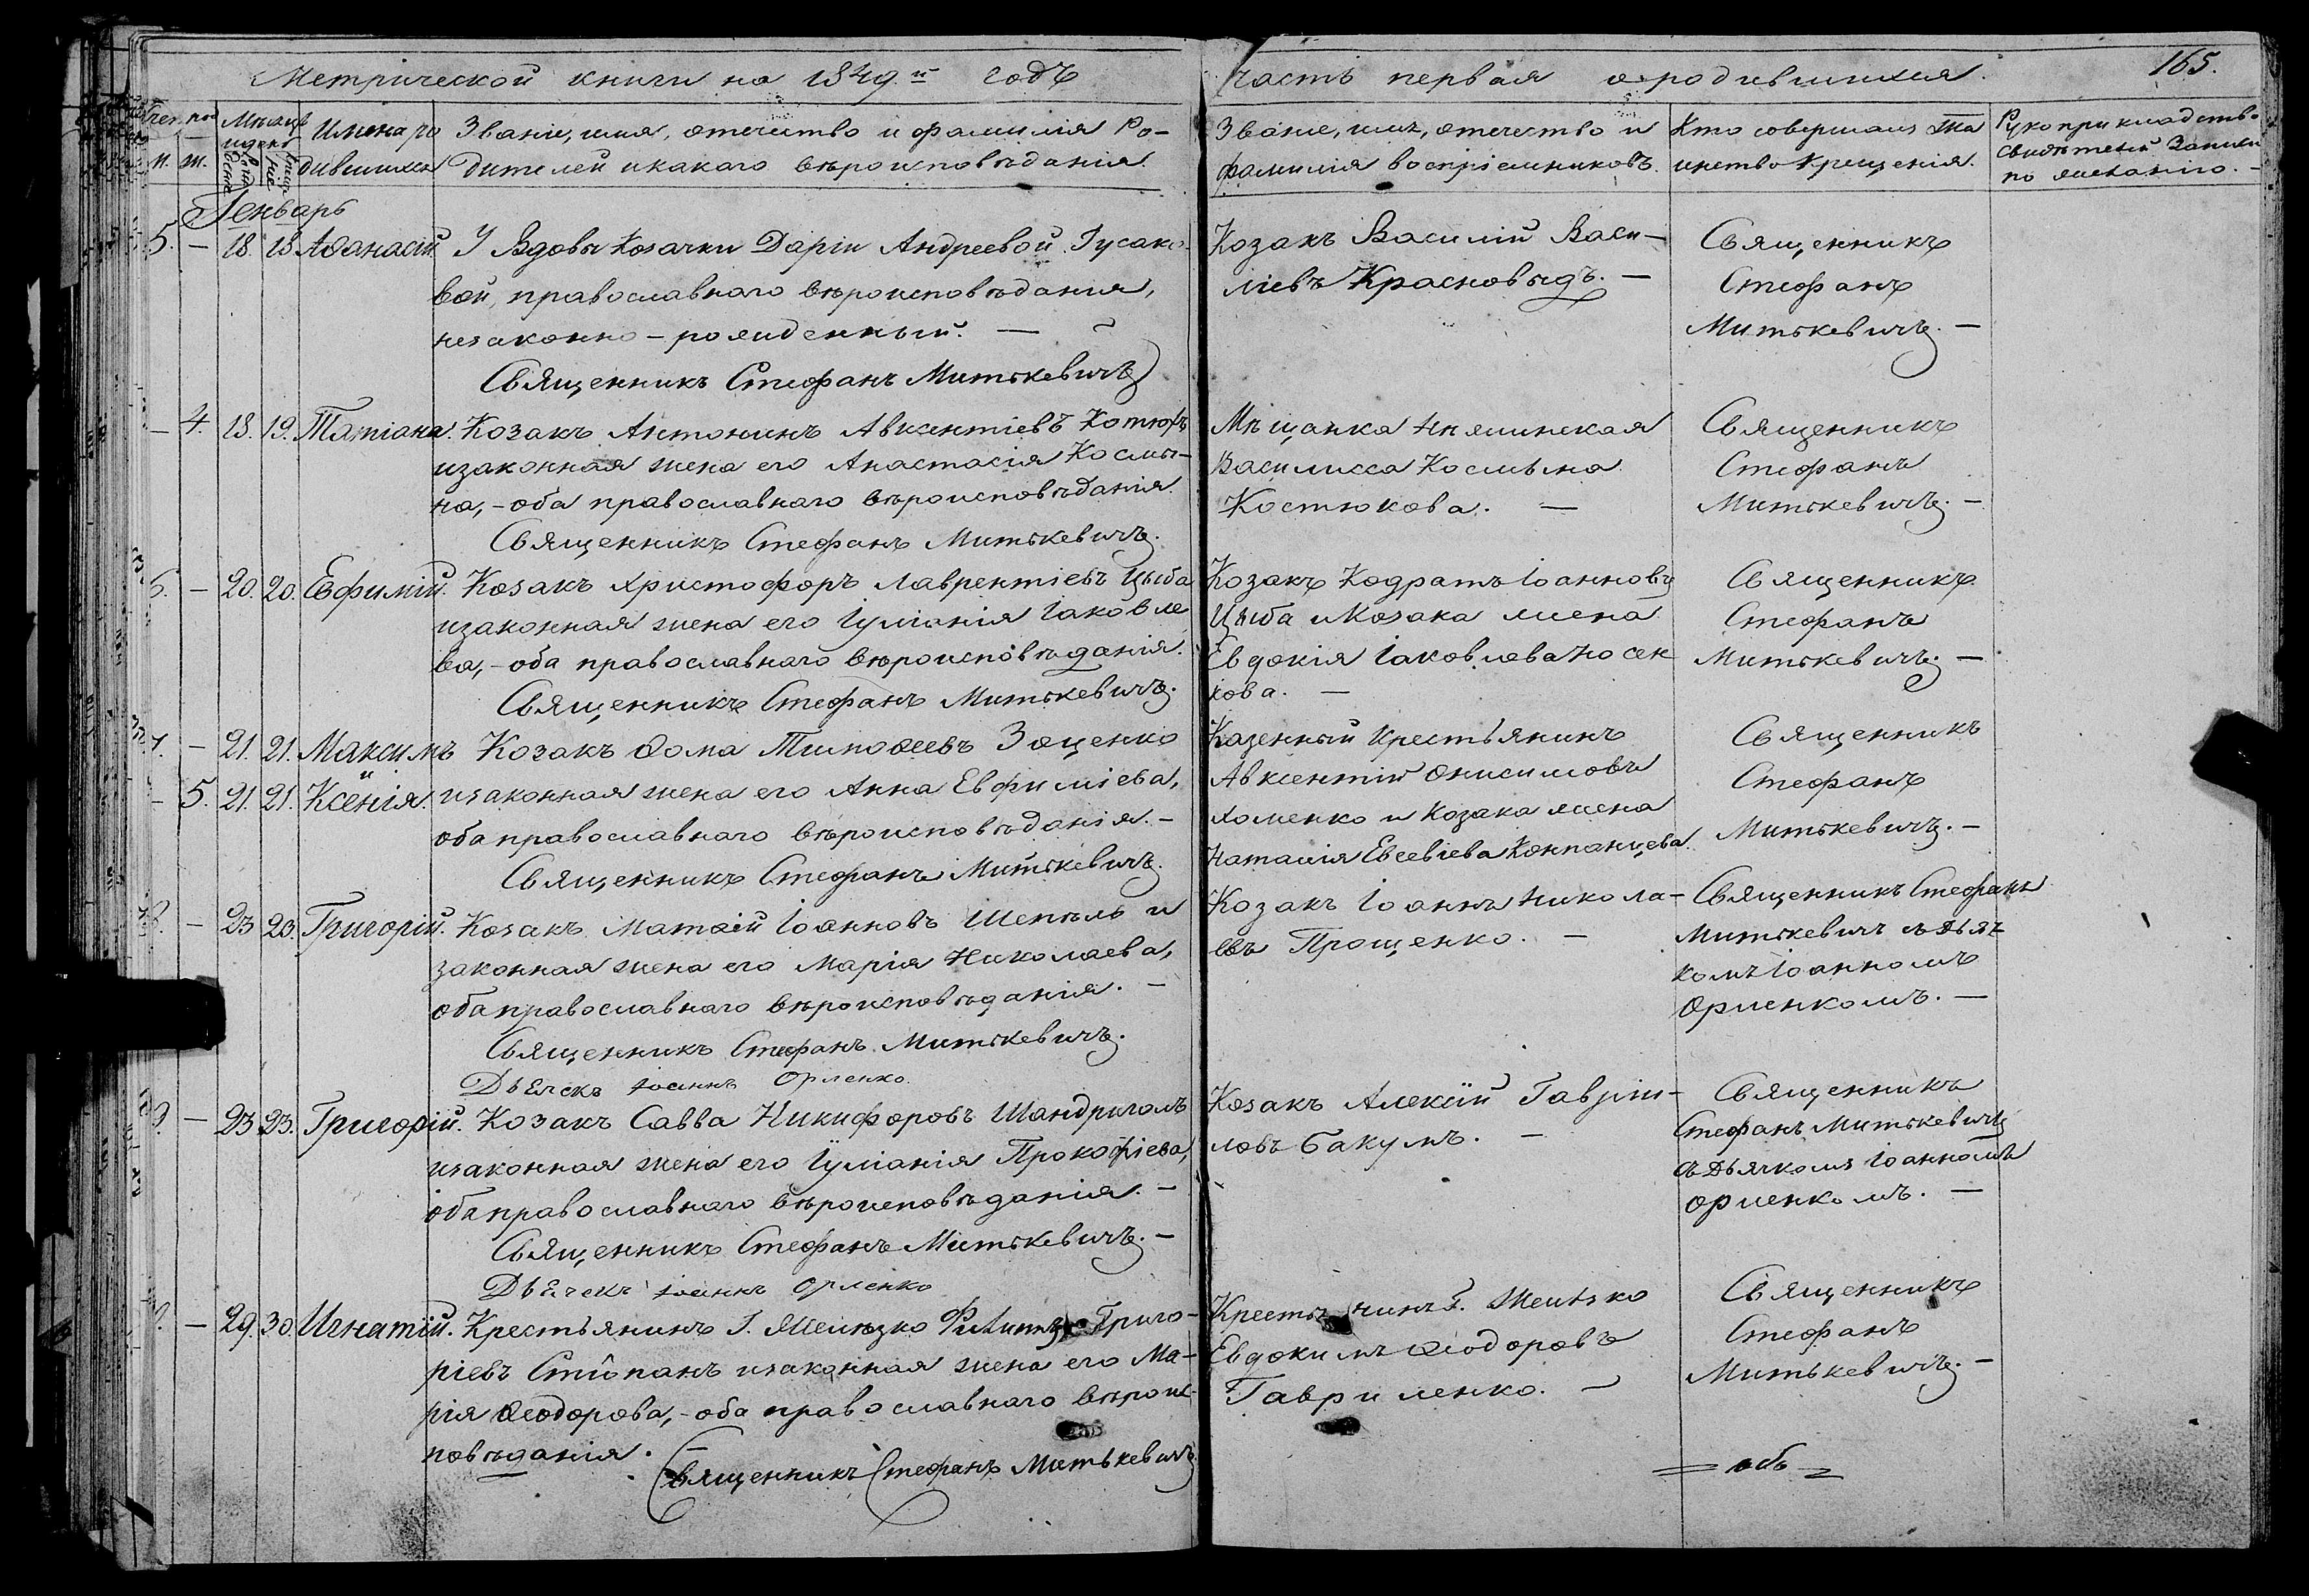 Метрической книги на 1849й годъ
часть первая о родившихся.
165.
Имена ро
дившихся
Званіе, имя, отечество и фамилія Ро-
дителей и какаго вѣроисповѣданія.
Званіе, имя, отечество и
фамилія воспріемниковъ.
Кто совершалъ Та
инство Крещенія.
Рукоприкладство
свидѣтелей записи
по желанію.
М. Ж.
Генварь
5. — 18. 18. Аѳанасій. У Вдовы Козачки Даріи Андреевой Гусако-
вой, православнаго вѣроисповѣданія,
незаконно-рожденный. —
Священникъ Стефанъ Митькевичъ
Козакъ Василій Васи-
ліевъ Красновыдъ. —
Священникъ
Стефанъ
Митькевичъ. —
— 4. 18. 19. Татіана. Козакъ Антонинъ Авксентіевъ
и законная жена его Анастасія Косми-
на, - оба православнаго вѣроисповѣданія.
Священникъ Стефанъ Митькевичъ.
Мѣщанка Нѣжинская
Василисса Космина
Костюкова. —
Священникъ
Стефанъ
Митькевичъ. —
6. — 20. 20. Евфимій. Козакъ Христофоръ Лаврентіевъ Цыба
и законная жена его Іуліанія Іаковле
ва, - оба православнаго вѣроисповѣданія.
Священникъ Стефанъ Митькевичъ.
Козакъ Кодратъ Іоанновъ
Цыба и Козака жена
Евдокія Іаковлева Носен
кова. —
Священникъ
Стефанъ
Митькевичъ. —
7. — 21. 21. Максимъ Козакъ Ѳома Тимоѳеевъ Зощенко
и
— 5. 21. 21. Ксенія. и законная жена его Анна Евфиміева,
оба православнаго вѣроисповѣданія. —
Священникъ Стефанъ Митькевичъ.
Казенный Крестьянинъ
Авксентій Онисимовъ
Хоменко и Козака жена
Наталія Евсевіева Компанцева.
Священникъ
Стефанъ
Митькевичъ. —
8. — 23 23. Григорій. Козакъ Матѳій Іоанновъ Шепѣль и
законная жена его Марія Николаева,
оба православнаго вѣроисповѣданія. —
Священникъ Стефанъ Митькевичъ.
Дьячекъ Іоаннъ Орленко.
Козакъ Іоаннъ Никола-
евъ Прощенко. —
Священникъ Стефанъ
Митькевичъ съ Дьяч
комъ Іоанномъ
Орленкомъ. —
9. — 23 23. Григорій. Козакъ Савва Никифоровъ Шандриголъ
и законная жена его Іуліанія Прокофіева,
оба православнаго вѣроисповѣданія. —
Священникъ Стефанъ Митькевичъ. —
Дьячекъ Іоаннъ Орленко
Козакъ Алексій Гавріи-
ловъ Бакумъ. —
Священникъ
Стефанъ Митькевичъ
съ Дьячкомъ Іоанномъ
Орленкомъ. —
— 29. 30. Игнатій. Крестьянинъ Г. Филиппъ Григо-
ріевъ Стюпанъ и законная жена его Ма-
рія Ѳеодорова, - оба православнаго вѣроис-
повѣданія. —
Священникъ Стефанъ Митькевичъ
Г.
Евдокимъ Ѳеодоровъ
Гавриленко. —
Священникъ
Стефанъ
Митькевичъ. —